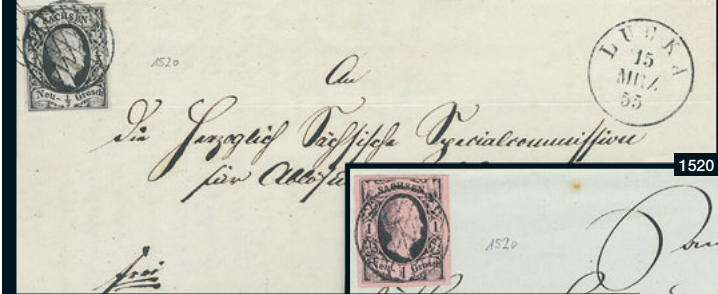 SACHSEN
Neu-½ Grosch
1520
LUCKA
15
MRZ
55
An
die Herzoglich Sächsische Specialcommission
für Ablösu
frei
1520
SACHSEN
1 1
Neu-1 Grosch
1520